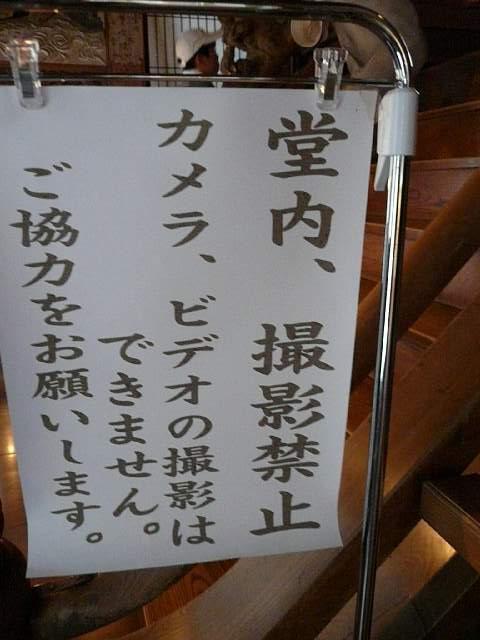 堂内、撮影禁止
カメラ、ビデオの撮影は
できません。
ご協力をお願いします。